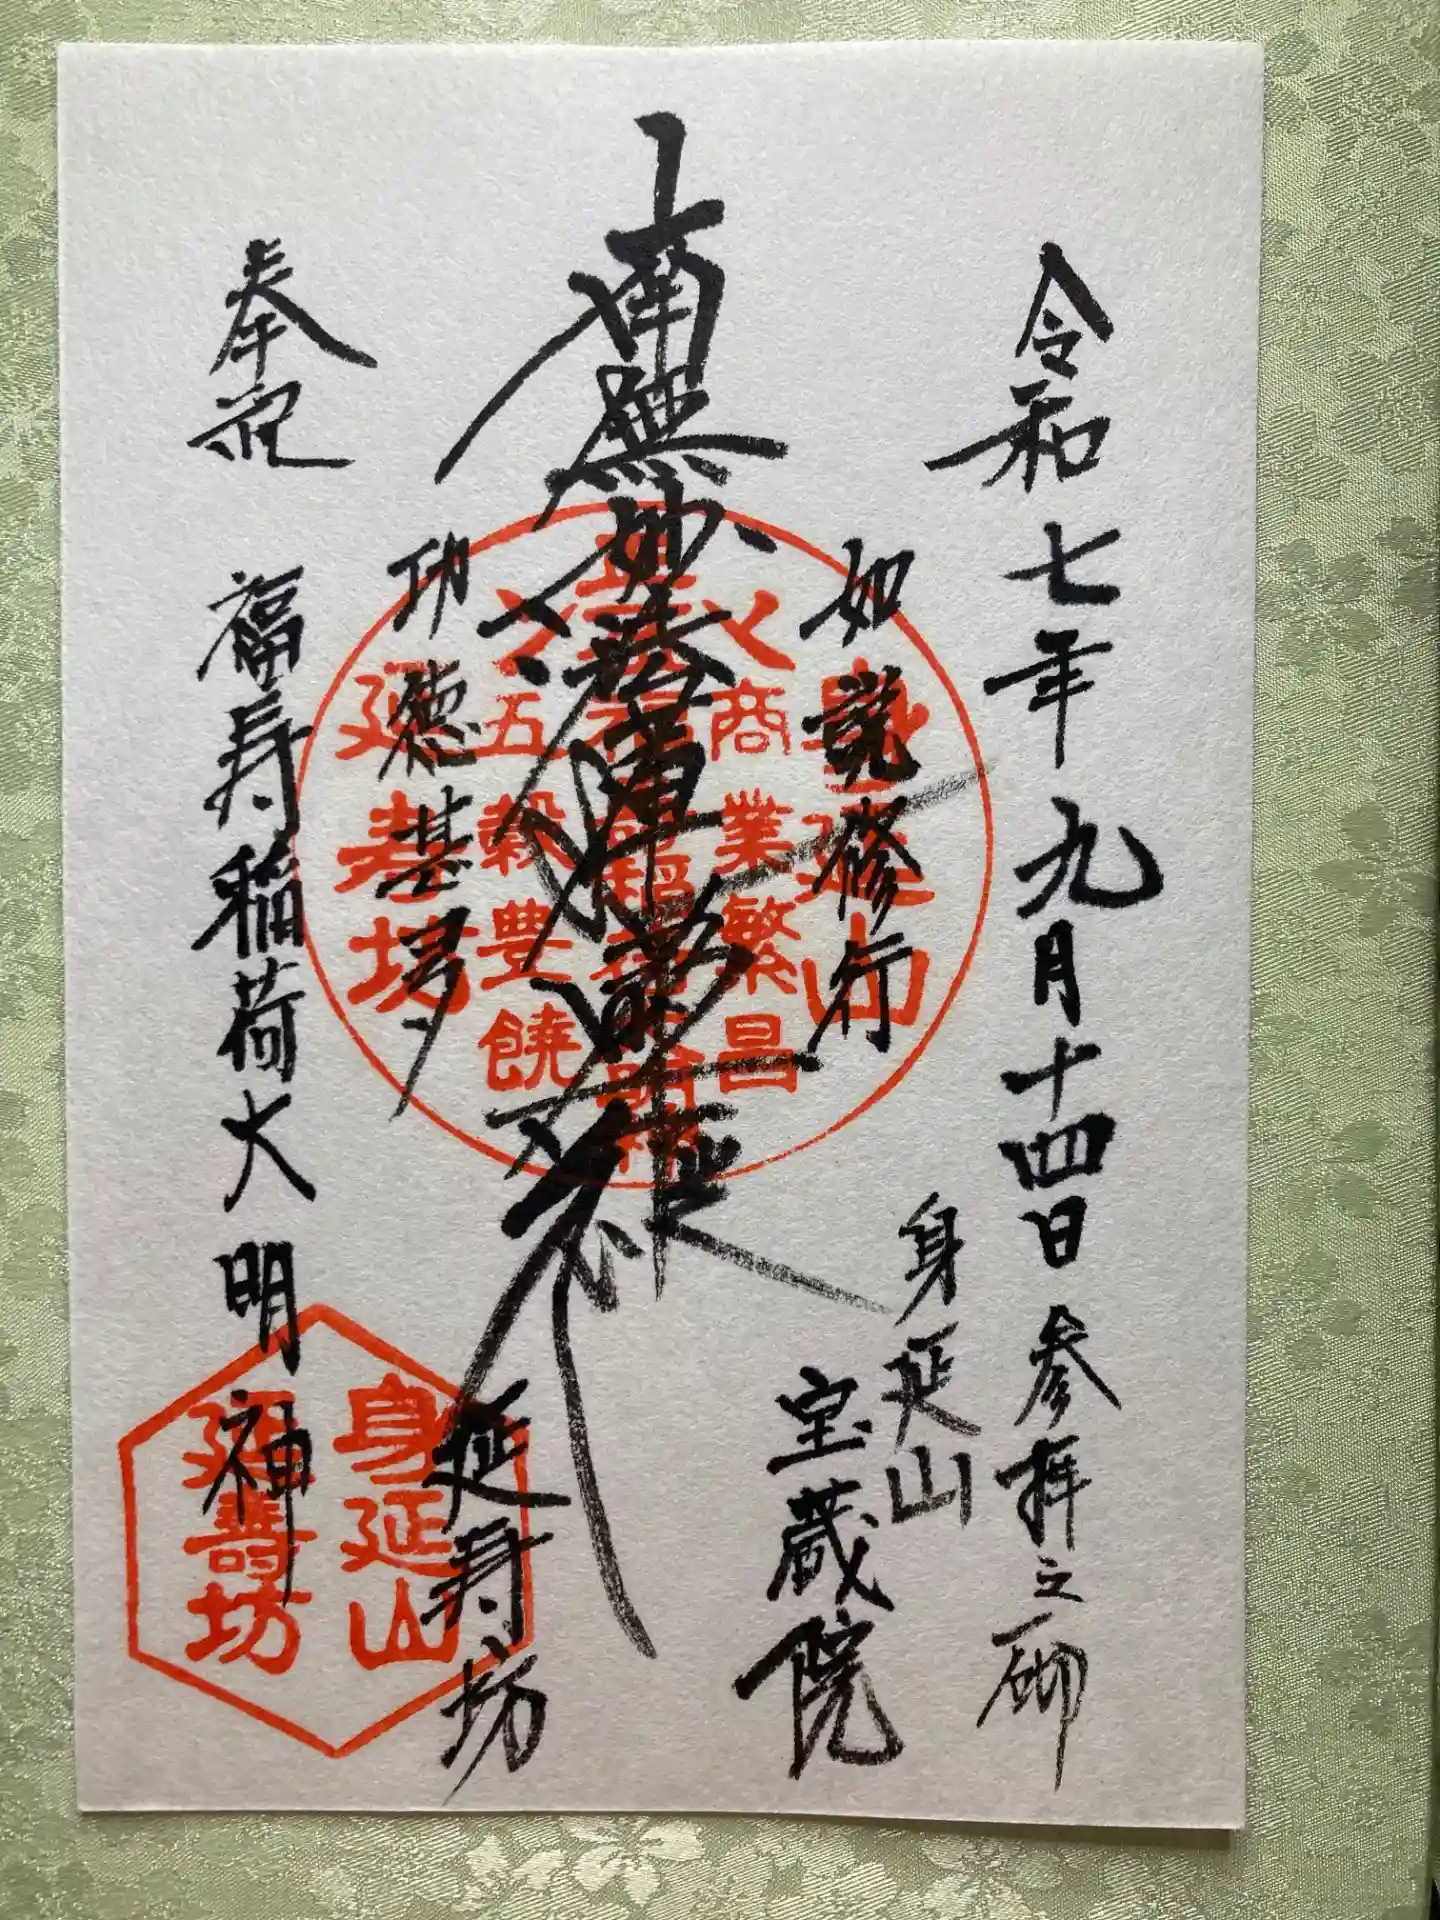 令和七年九月十四日参拝之砌
身延山
宝蔵院
如説修行
南無妙法蓮華経
功徳甚多
延寿坊
奉祀 福寿稲荷大明神
身延山
商業繁昌
五穀豊饒
延寿坊
身延山
延壽坊